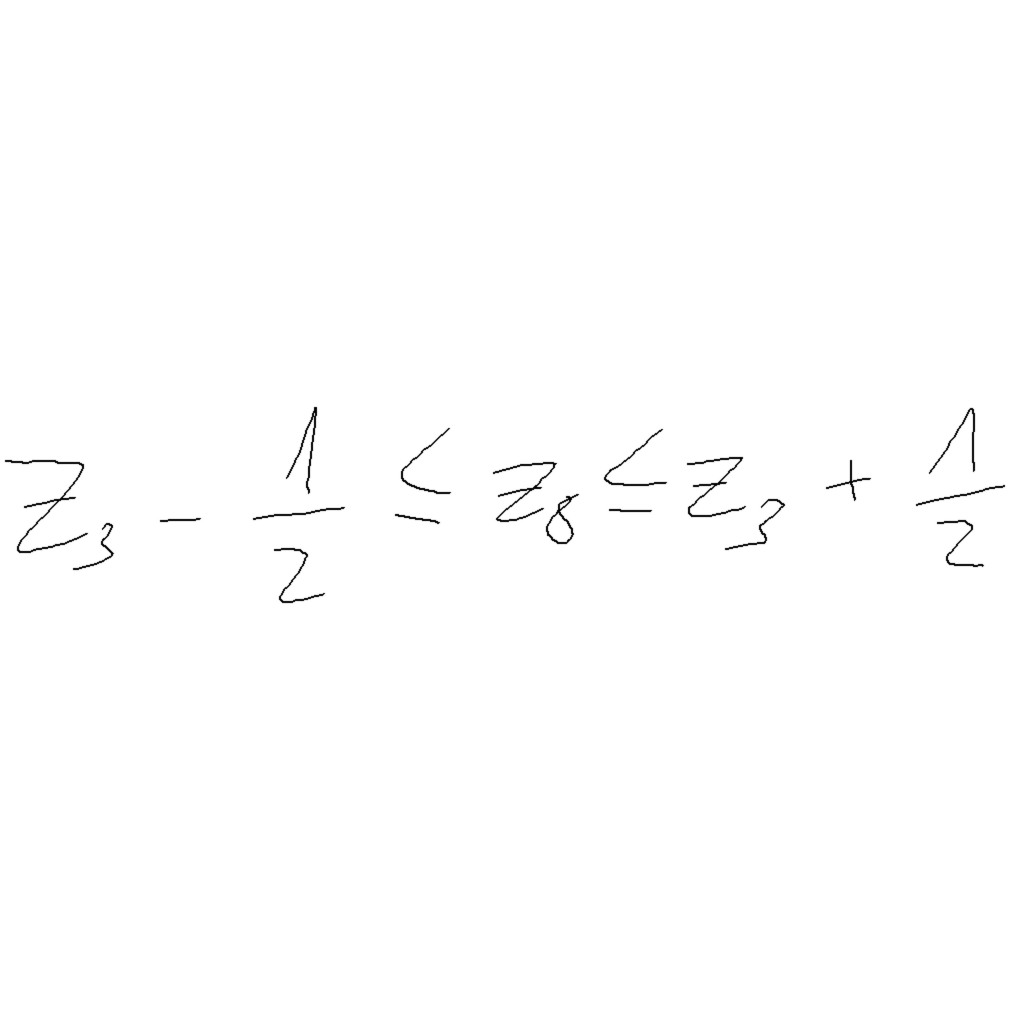 z_3 - \frac{1}{2} \leq z_8 \leq z_3 + \frac{1}{2}